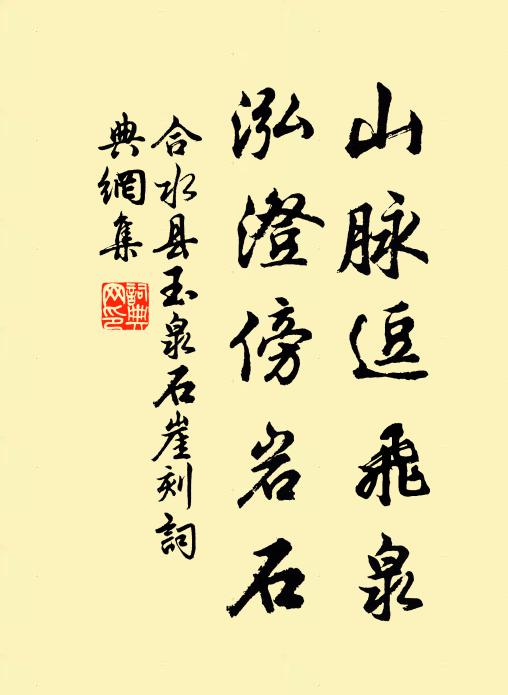 山脉逗飛泉
泓澄傍岩石
合水县玉泉石崖刻詞
典網集
詞典网印